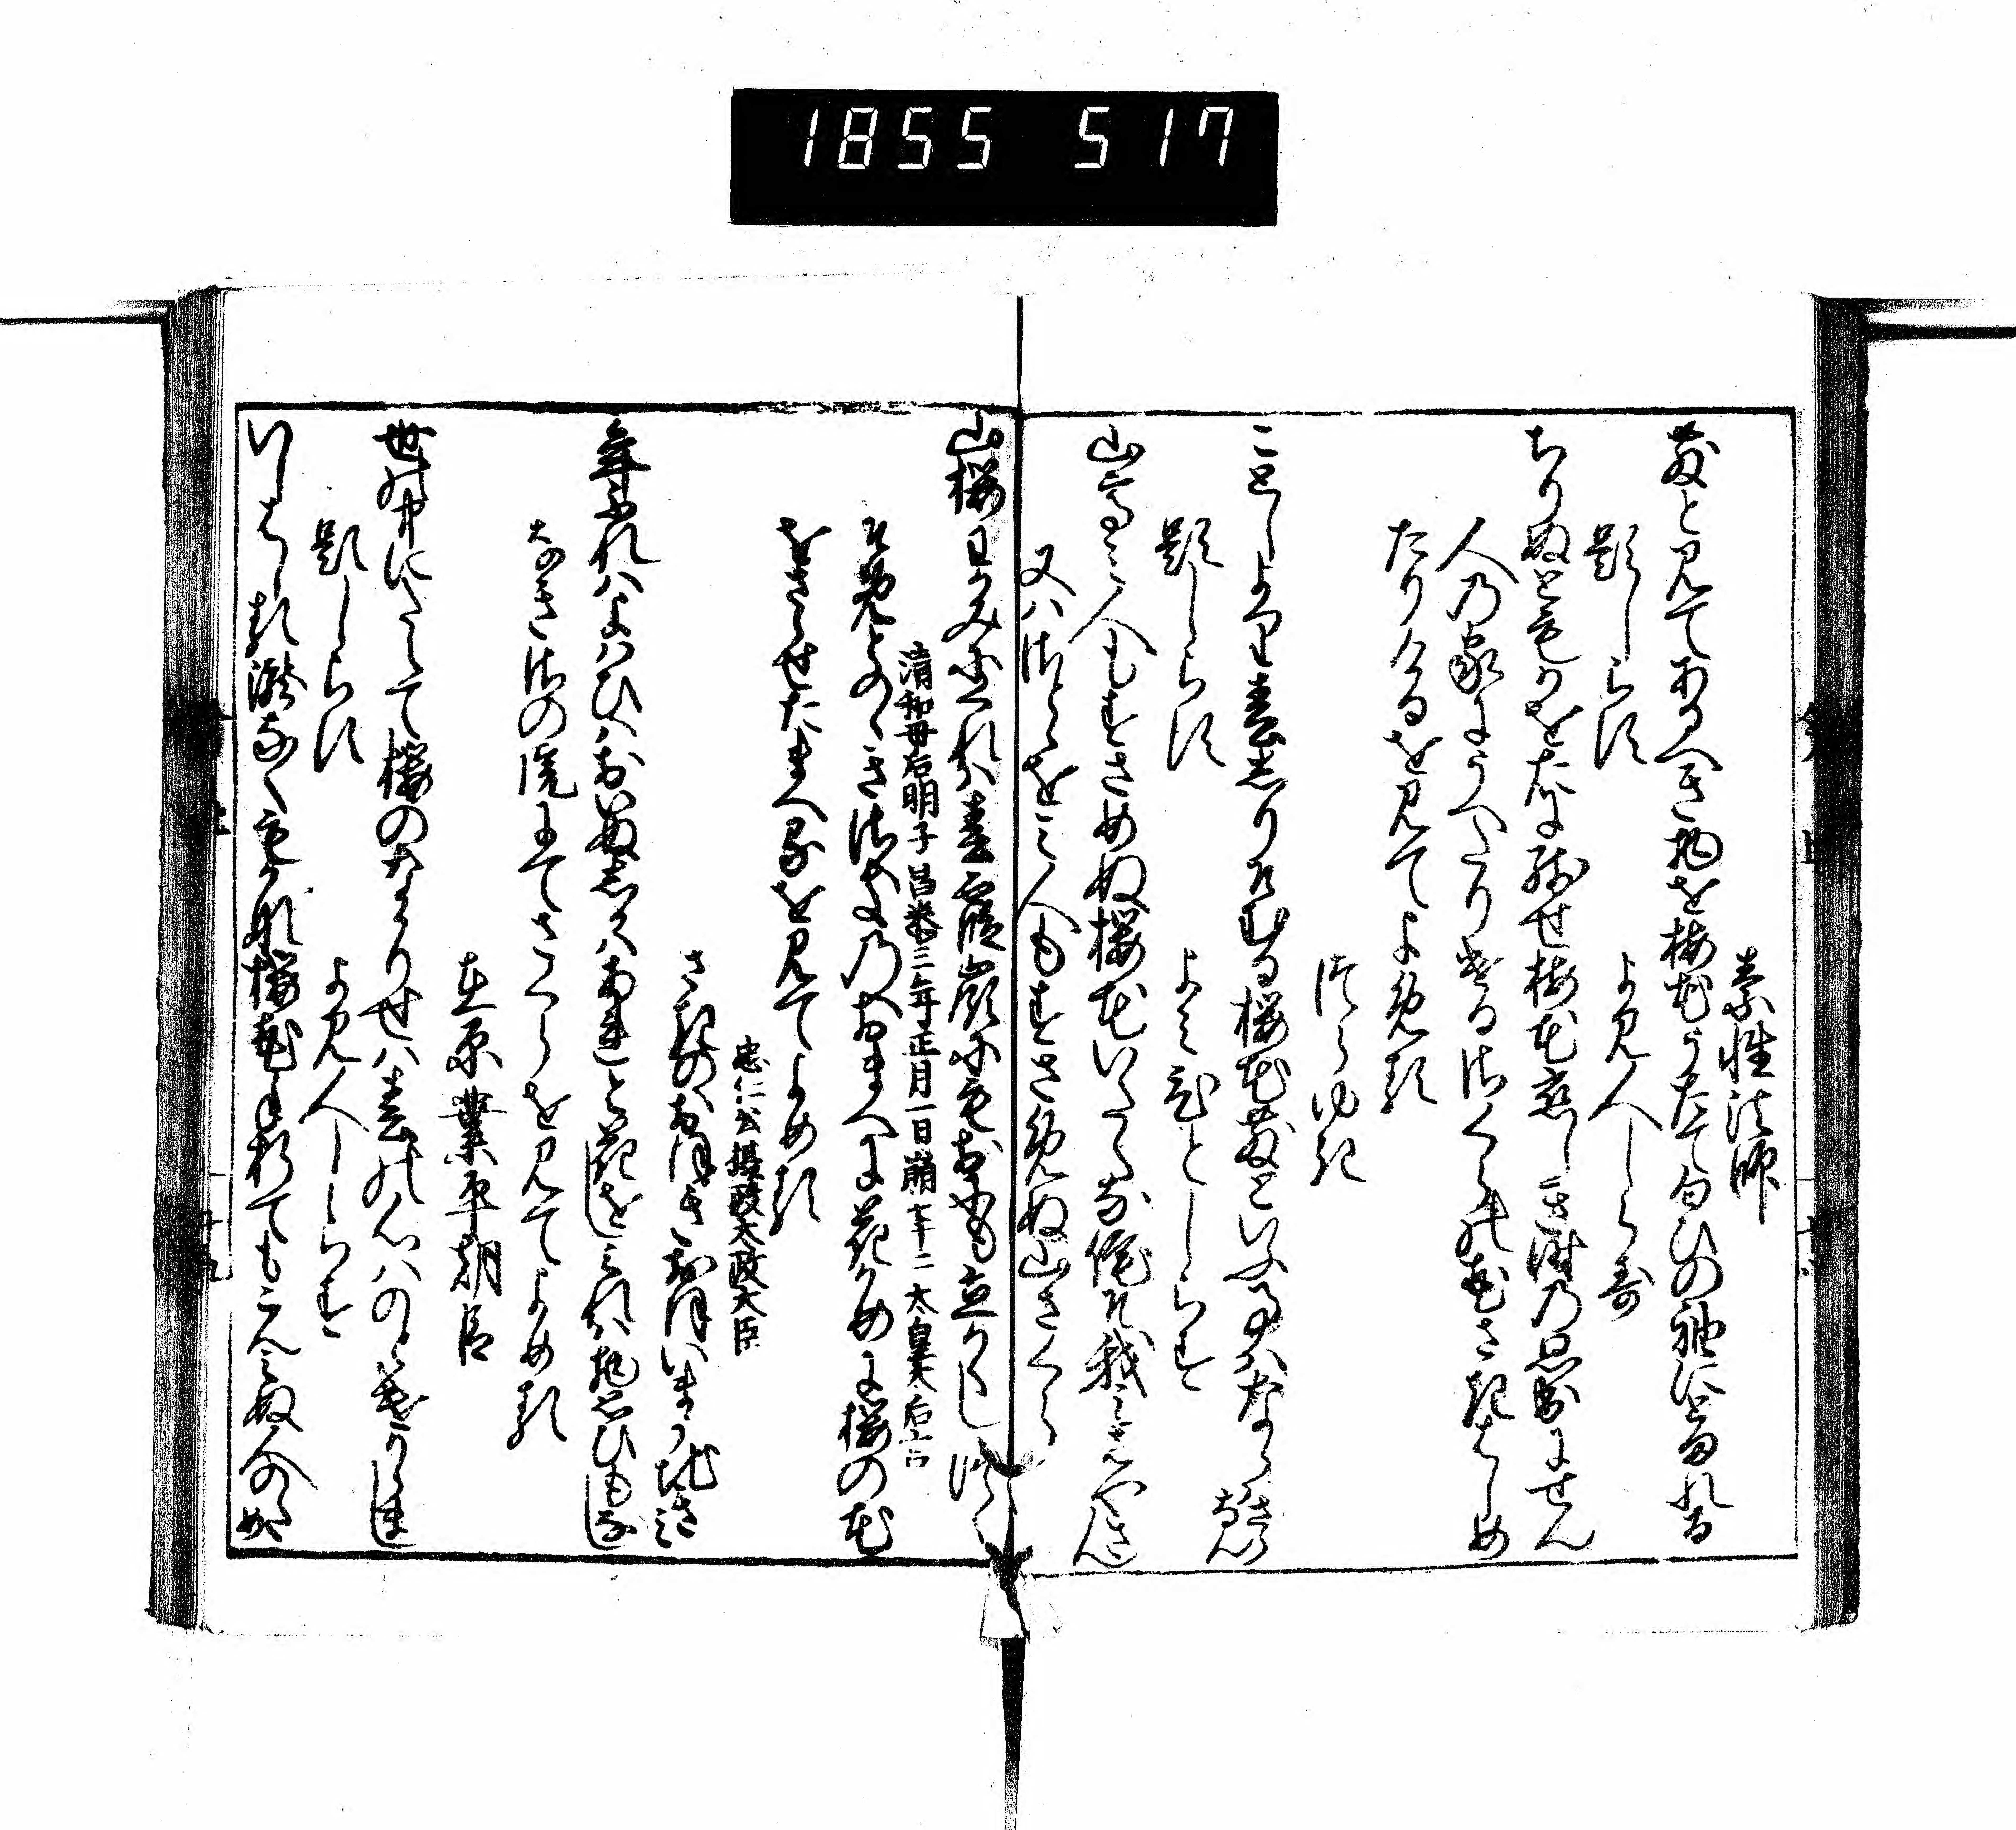 1855 517
素性法師
ちると見てあるへき物を梅花うたて匂ひの袖にとまれる
題しらす
よみ人しらす
ちりぬとも香をたに残せ梅花恋しき時の思出にせん
人の家にうへたりける桜の花さきはしめ
たりけるを見てよめる
つらゆき
ことしより春しりそむる桜花ちるといふ事はならはさらなん
題しらす
よみ人しらす
山高み人もすさめぬ桜花いたくなわひそ我みはやさん
又は里とをみ人もすさめぬ山さくら
山桜わかみにくれは春霞嶺にも尾にも立かくしつゝ
清和母后明子昌泰三年正月一日崩七十二太皇太后宮
そめとのゝきさきのおまへに花かめに桜の花
をさゝせたまへるを見てよめる
忠仁公摂政太政大臣
さきのおほきおほいまうちきみ
年ふれはよはひは老ぬしかはあれと花をしみれは物思ひもなし
なきさの院にてさくらを見てよめる
在原業平朝臣
世中にたえて桜のなかりせは春の心はのとけからまし
題しらす
よみ人しらす
いしはしる滝なくもかな桜花手折てもこんみぬ人のため